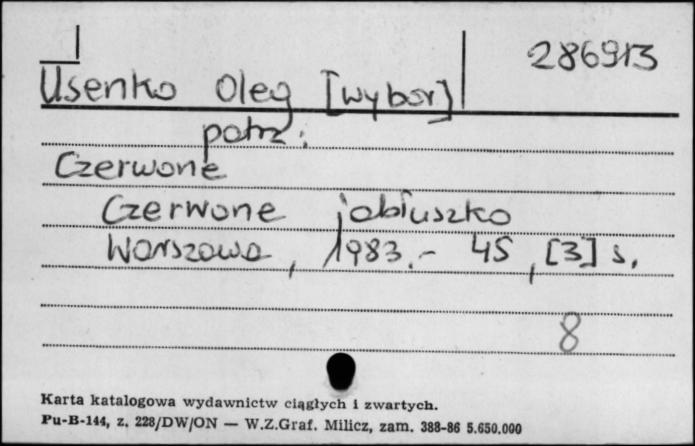 286913
Usenko Oleg [wybór]
patrz:
Czerwone
Czerwone jabłuszko
Warszawa, 1983.- 45, [3] s.
8
Karta katalogowa wydawnictw ciągłych i zwartych.
Pu-B-144, z. 228/DW/ON — W.Z.Graf. Milicz, zam. 388-86 5.650.000